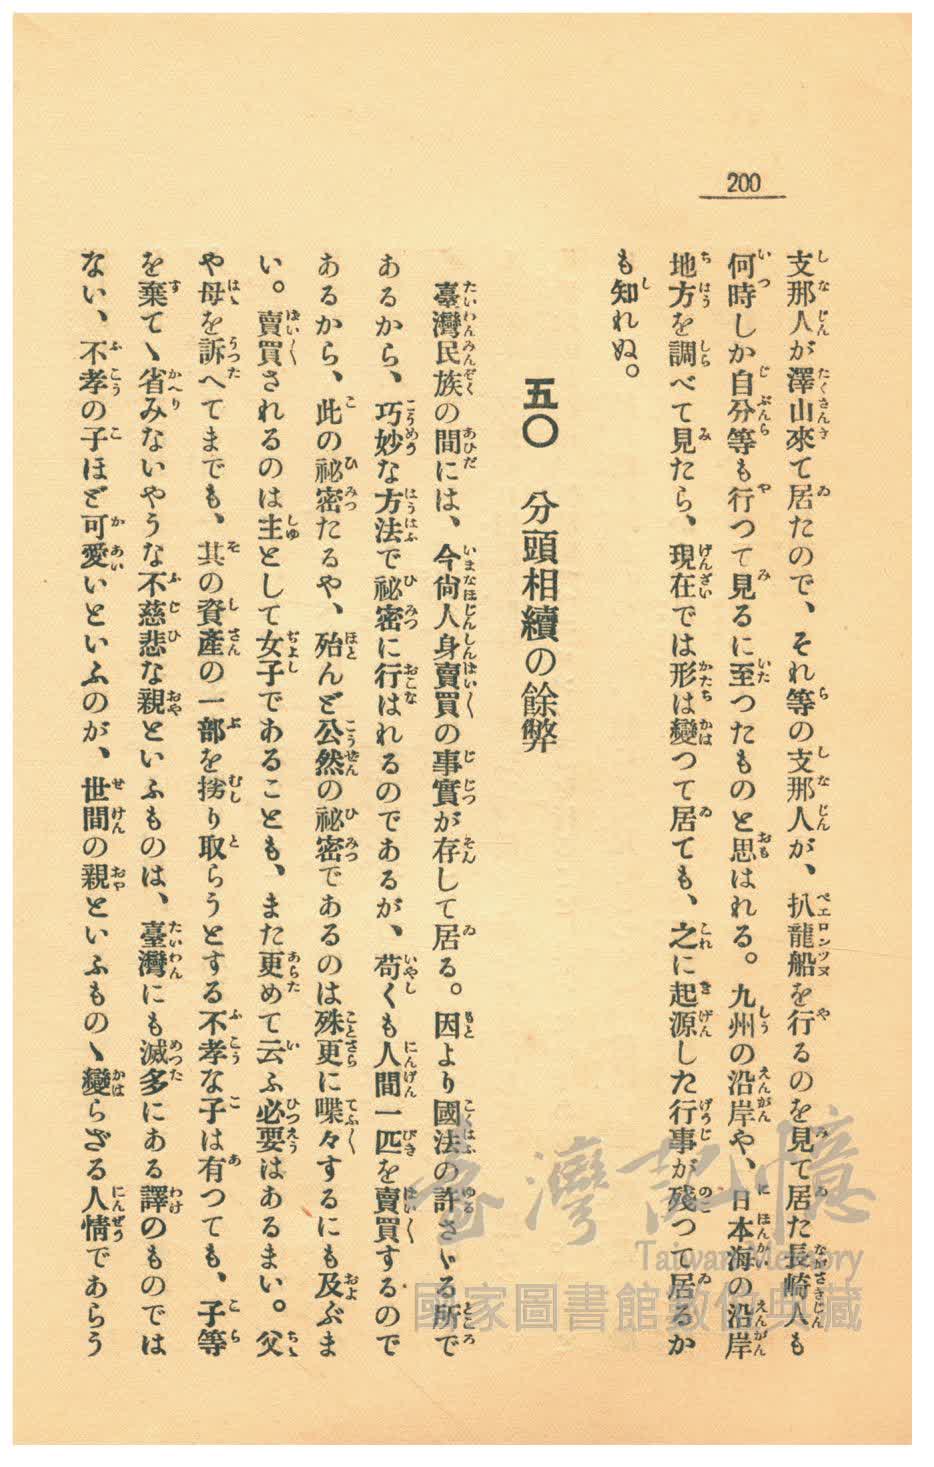 200
支那人が澤山來て居たので、それ等の支那人が、扒龍船を行るのを見て居た長崎人も
何時しか自分等も行つて見るに至つたものと思はれる。九州の沿岸や、日本海の沿岸
地方を調べて見たら、現在では形は變つて居ても、之に起源した行事が殘つて居るか
も知れぬ。
五〇 分頭相續の餘弊
臺灣民族の間には、今尙人身賣買の事實が存して居る。因より國法の許さゝる所で
あるから、巧妙な方法で祕密に行はれるのであるが、苟くも人間一匹を賣買するので
あるから、此の祕密たるや、殆んど公然の祕密であるのは殊更に喋々するにも及ぶま
い。賣買されるのは主として女子であることも、また更めて云ふ必要はあるまい。父
や母を訴へてまでも、其の資產の一部を挘り取らうとする不孝な子は有つても、子等
を棄てゝ省みないやうな不慈悲な親といふものは、臺灣にも滅多にある譯のものでは
ない、不孝の子ほど可愛いといふのが、世間の親といふものゝ變らざる人情であらう
臺灣記憶
Taiwan Memory
國家圖書館數位典藏